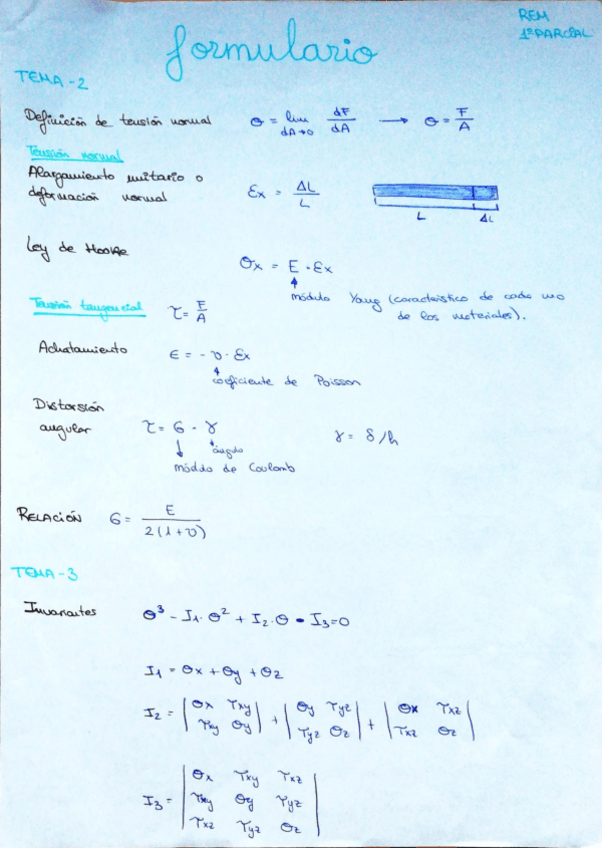 REM
1º PARCIAL
formulario
TEMA-2
Definición de tensión normal σ = lim dA→0 dF/dA → σ = F/A
Tensión normal
Alargamiento unitario o
deformación normal εx = ΔL/L
L ΔL
Ley de Hooke
σx = E · εx
módulo Yang (caracteristico de cada uno
de los materiales).
Tensión tangencial τ = F/A
Achatamiento ε = - υ · εx
coeficiente de Poisson
Distorsión
angular τ = G · γ γ = δ/h
ángulo
módulo de Coulomb
RELACIÓN G = E / 2(1+υ)
TEMA-3
Invariantes σ³ - I1 · σ² + I2 · σ - I3 = 0
I1 = σx + σy + σz
I2 = |σx τxy| + |σy τyz| + |σx τxz|
|τxy σy| |τyz σz| |τxz σz|
I3 = |σx τxy τxz|
|τxy σy τyz|
|τxz τyz σz|